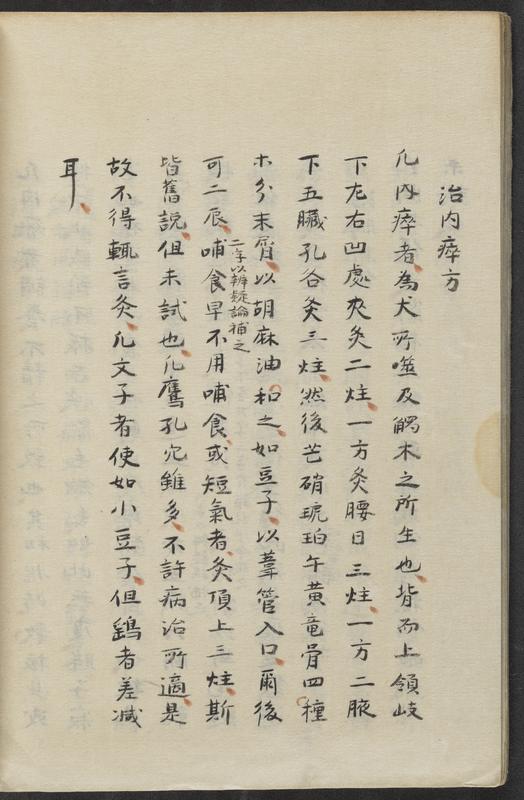 治内瘁方
凡内瘁者為犬所噬及觸木之所生也背而上領岐
下左右凹處夾灸二炷一方灸腰日三炷一方二腋
下五臓孔各灸三炷然後芒硝琥珀午黄竜骨四種
木分末屑以胡麻油和之如豆子以葦管入口爾後
可二辰哺食早不用哺食或短氣者灸頂上三炷斯
二字以辨疑論補之
皆舊説但未試也凡鷹孔穴雖多不許病治所適是
故不得輒言灸凡文子者使如小豆子但鷂者差减
耳